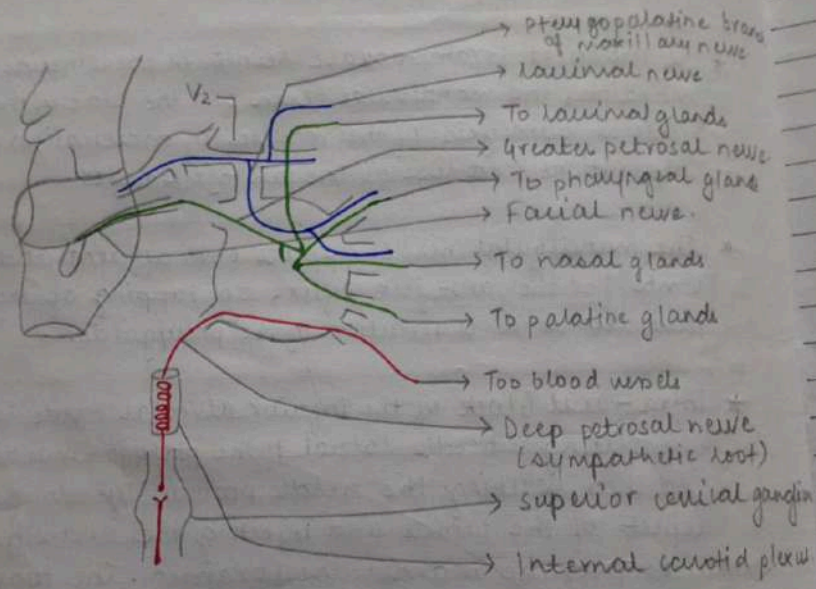 pterygopalatine
of maxillary nerve
V2
lacrimal nerve
To lacrimal glands
Greater petrosal nerve
To pharyngeal gland
Facial nerve.
To nasal glands
To palatine glands
Too blood vessels
Deep petrosal nerve
(sympathetic root)
superior cervical ganglin
Internal carotid plexu